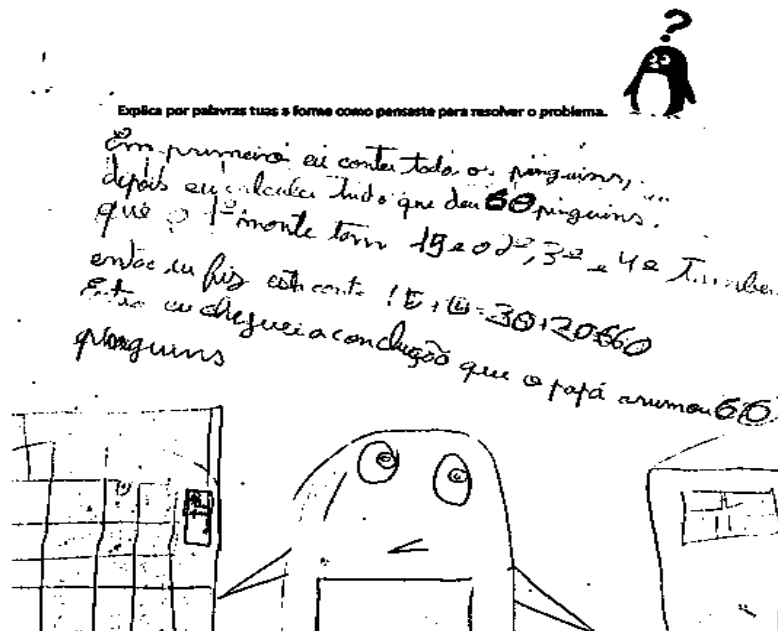 ?
Explica por palavras tuas a forma como pensaste para resolver o problema.
Em primeiro eu contei todo os pinguins,
depois eu calculei tudo que deu 60 pinguins.
que o 1º monte tem 15 e o 2º, 3º e 4º Também
então eu fiz esta conta 15+15=30+30=60
Então eu cheguei a conclusão que o papá arrumou 60
pinguins